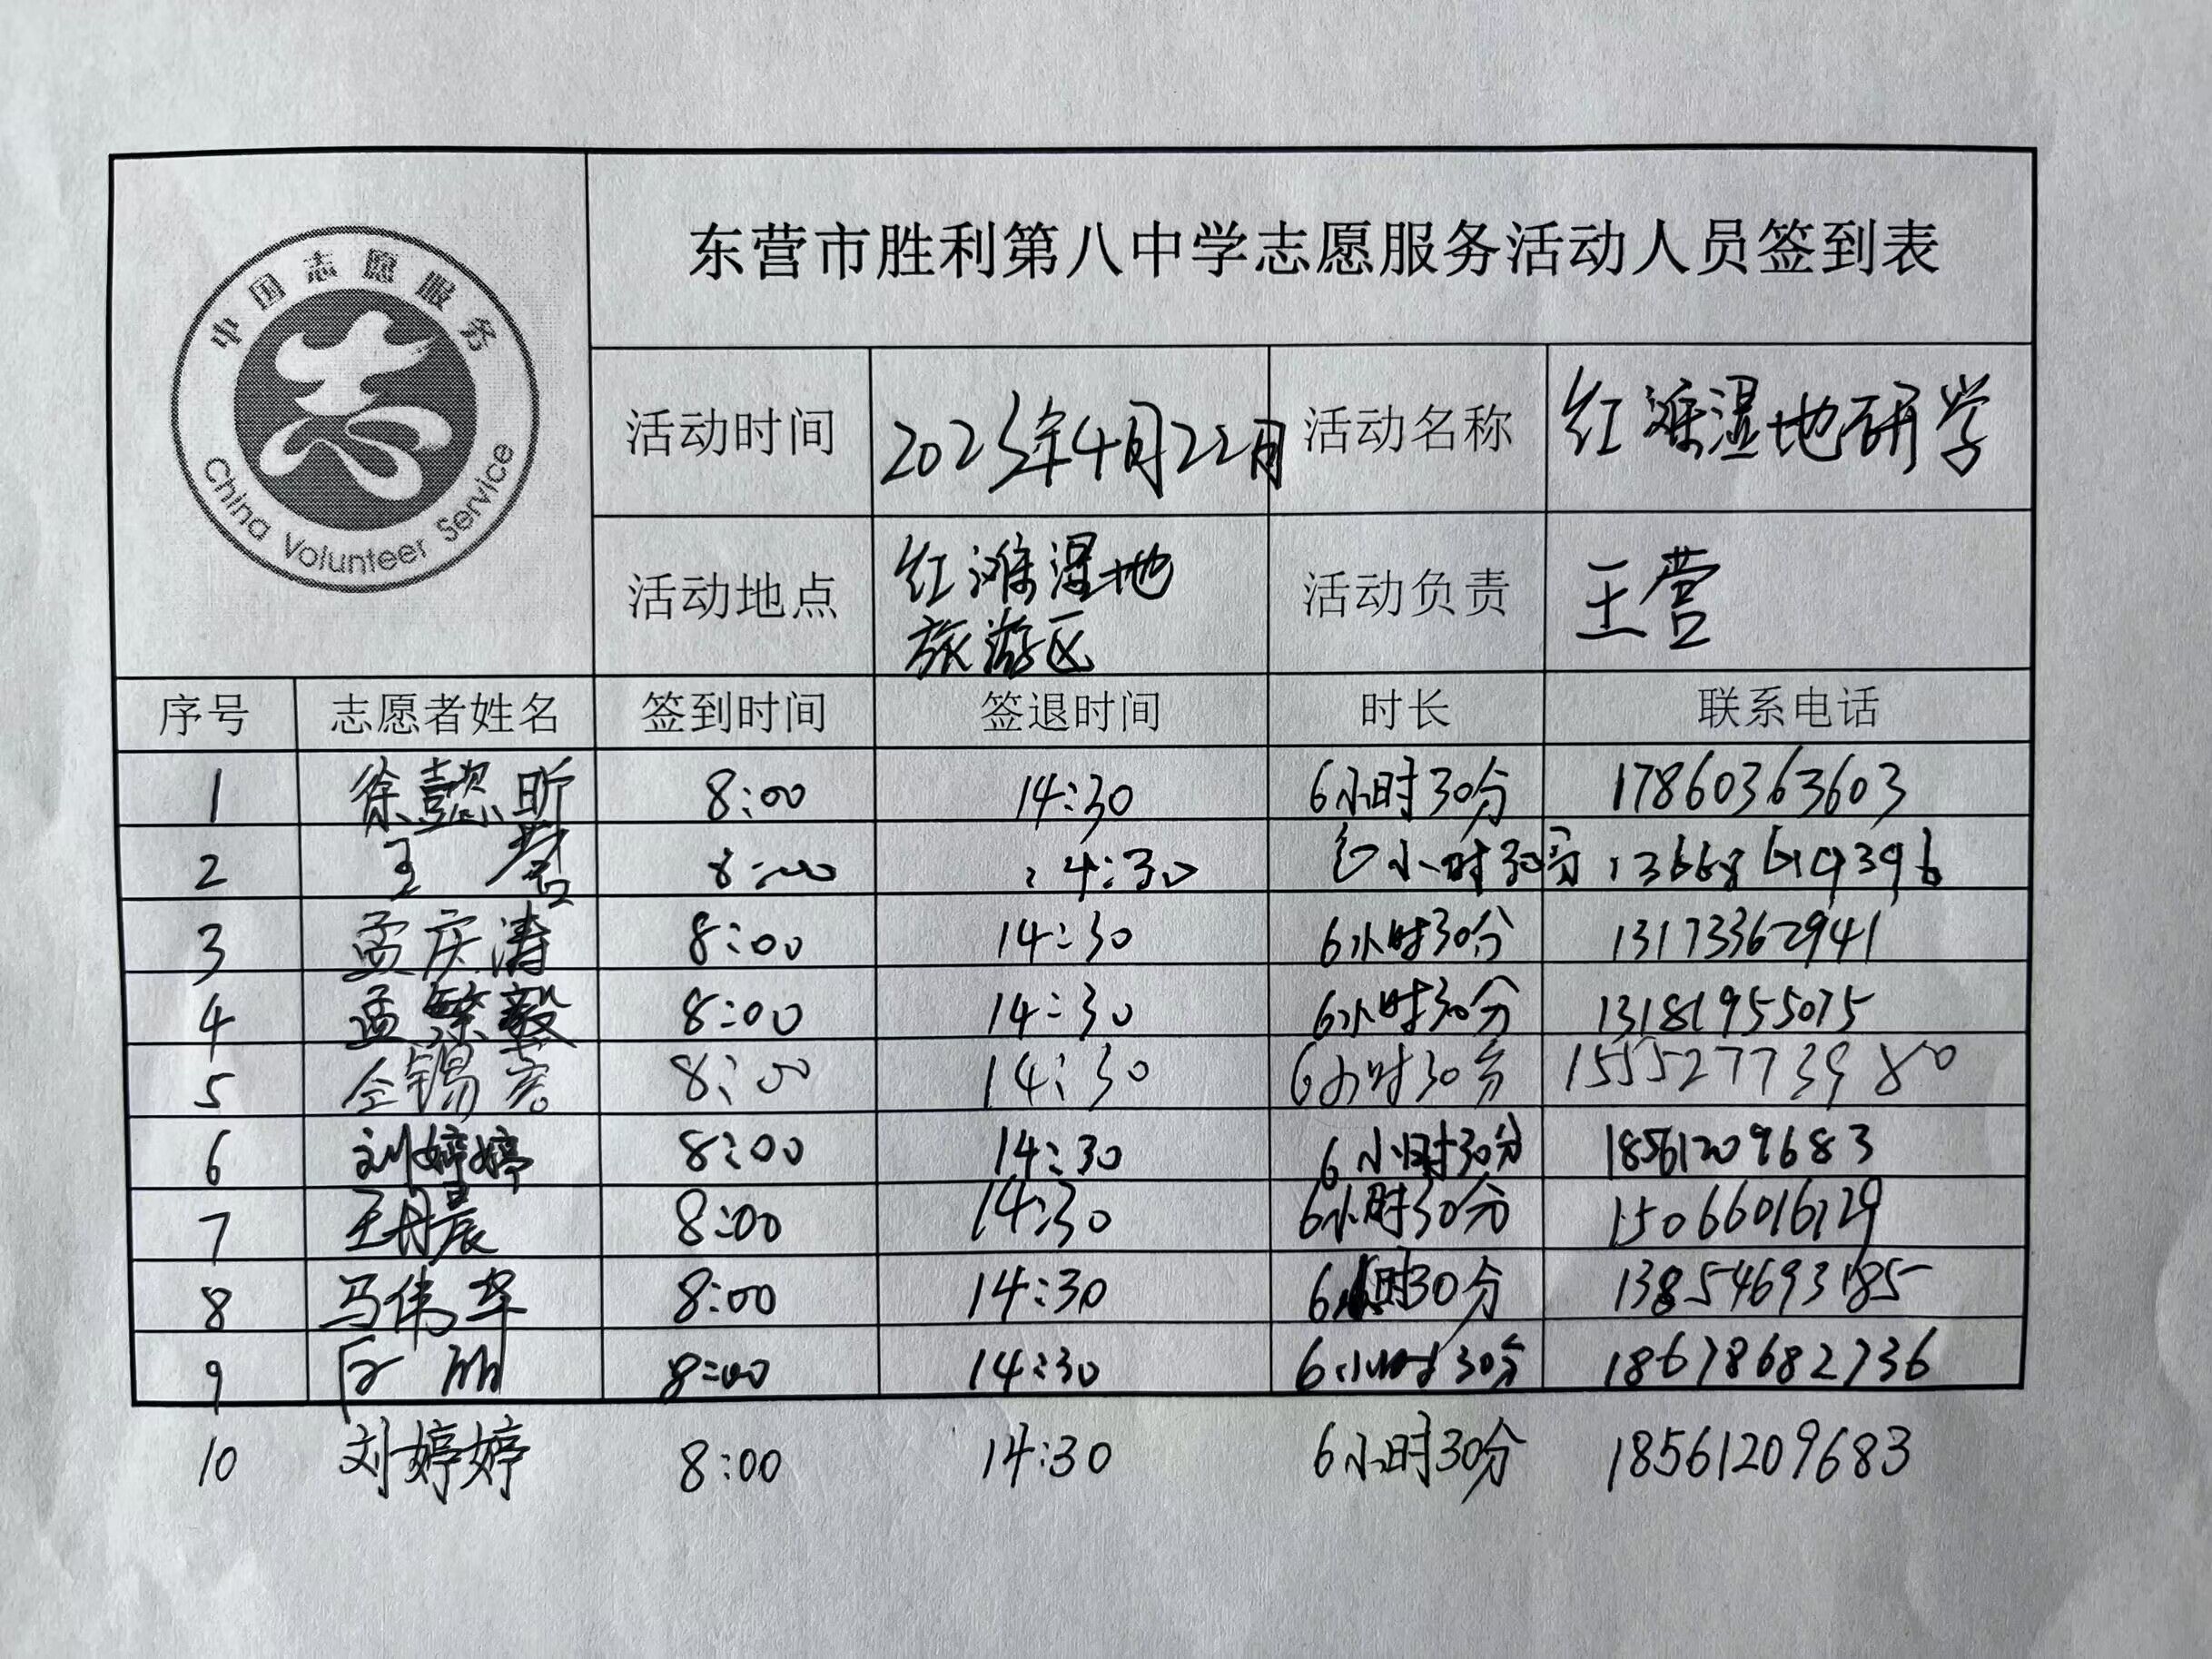 中国志愿服务
China Volunteer Service
东营市胜利第八中学志愿服务活动人员签到表
活动时间 2023年4月22日 活动名称 红滩湿地研学
活动地点 红滩湿地旅游区 活动负责 王营
序号 志愿者姓名 签到时间 签退时间 时长 联系电话
1 徐懿昕 8:00 14:30 6小时30分 17860363603
2 王营 8:00 14:30 6小时30分
3 孟庆涛 8:00 14:30 6小时30分 13173362941
4 孟繁毅 8:00 14:30 6小时30分 13181955075
5 仝锡 8:00 14:30 6小时30分 15552773980
6 刘婷婷 8:00 14:30 6小时30分 18561209683
7 王丹晨 8:00 14:30 6小时30分 15066016129
8 马伟华 8:00 14:30 6小时30分 13854693185
9 8:00 14:30 6小时30分 18678682736
10 刘婷婷 8:00 14:30 6小时30分 18561209683